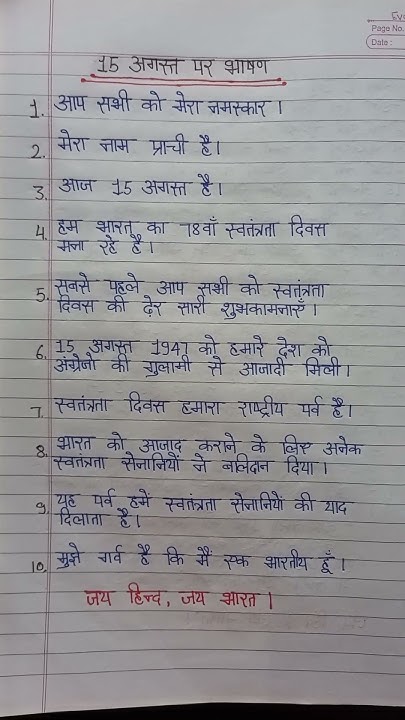 Page No.
Date :
15 अगस्त पर भाषण
1. आप सभी को मेरा नमस्कार ।
2. मेरा नाम प्राची है।
3. आज 15 अगस्त है।
4. हम भारत का 78वाँ स्वतंत्रता दिवस
मना रहे है।
5. सबसे पहले आप सभी को स्वतंत्रता
दिवस की ढ़ेर सारी शुभकामनाएँ ।
6. 15 अगस्त 1947 को हमारे देश को
अंग्रेजो की गुलामी से आजादी मिली।
7. स्वतंत्रता दिवस हमारा राष्ट्रीय पर्व है।
8. भारत को आजाद कराने के लिए अनेक
स्वतंत्रता सेनानियों ने बलिदान दिया ।
9. यह पर्व हमें स्वतंत्रता सेनानियों की याद
दिलाता है।
10. मुझे गर्व है कि मैं एक भारतीय हूँ ।
जय हिन्द, जय भारत ।